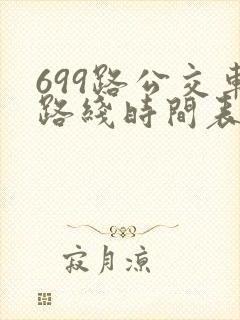 699路公交車
路綫時間表
寂月凉